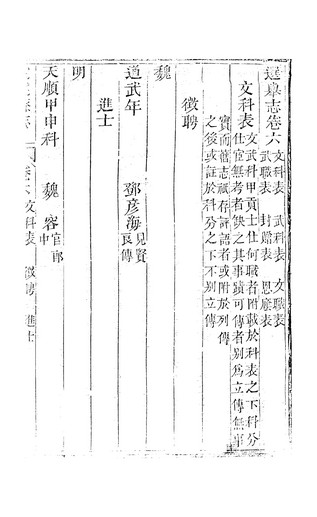 志卷六 文科表 武科表 文職表
武職表 封贈表 恩廕表
文科表 文武科甲貢士仕何職者附載於科表之下科分
仕宦無考者缺之其事蹟可傳者別為立傳無事
實而舊志祗存評語者或附於列傳
之後或註於科分之下不別立傳
徵聘
魏
道武年 鄧彥海 見賢
良傳
進士
明
天順甲申科 魏容 官郎
中
卷六 文科表 徵聘 進士